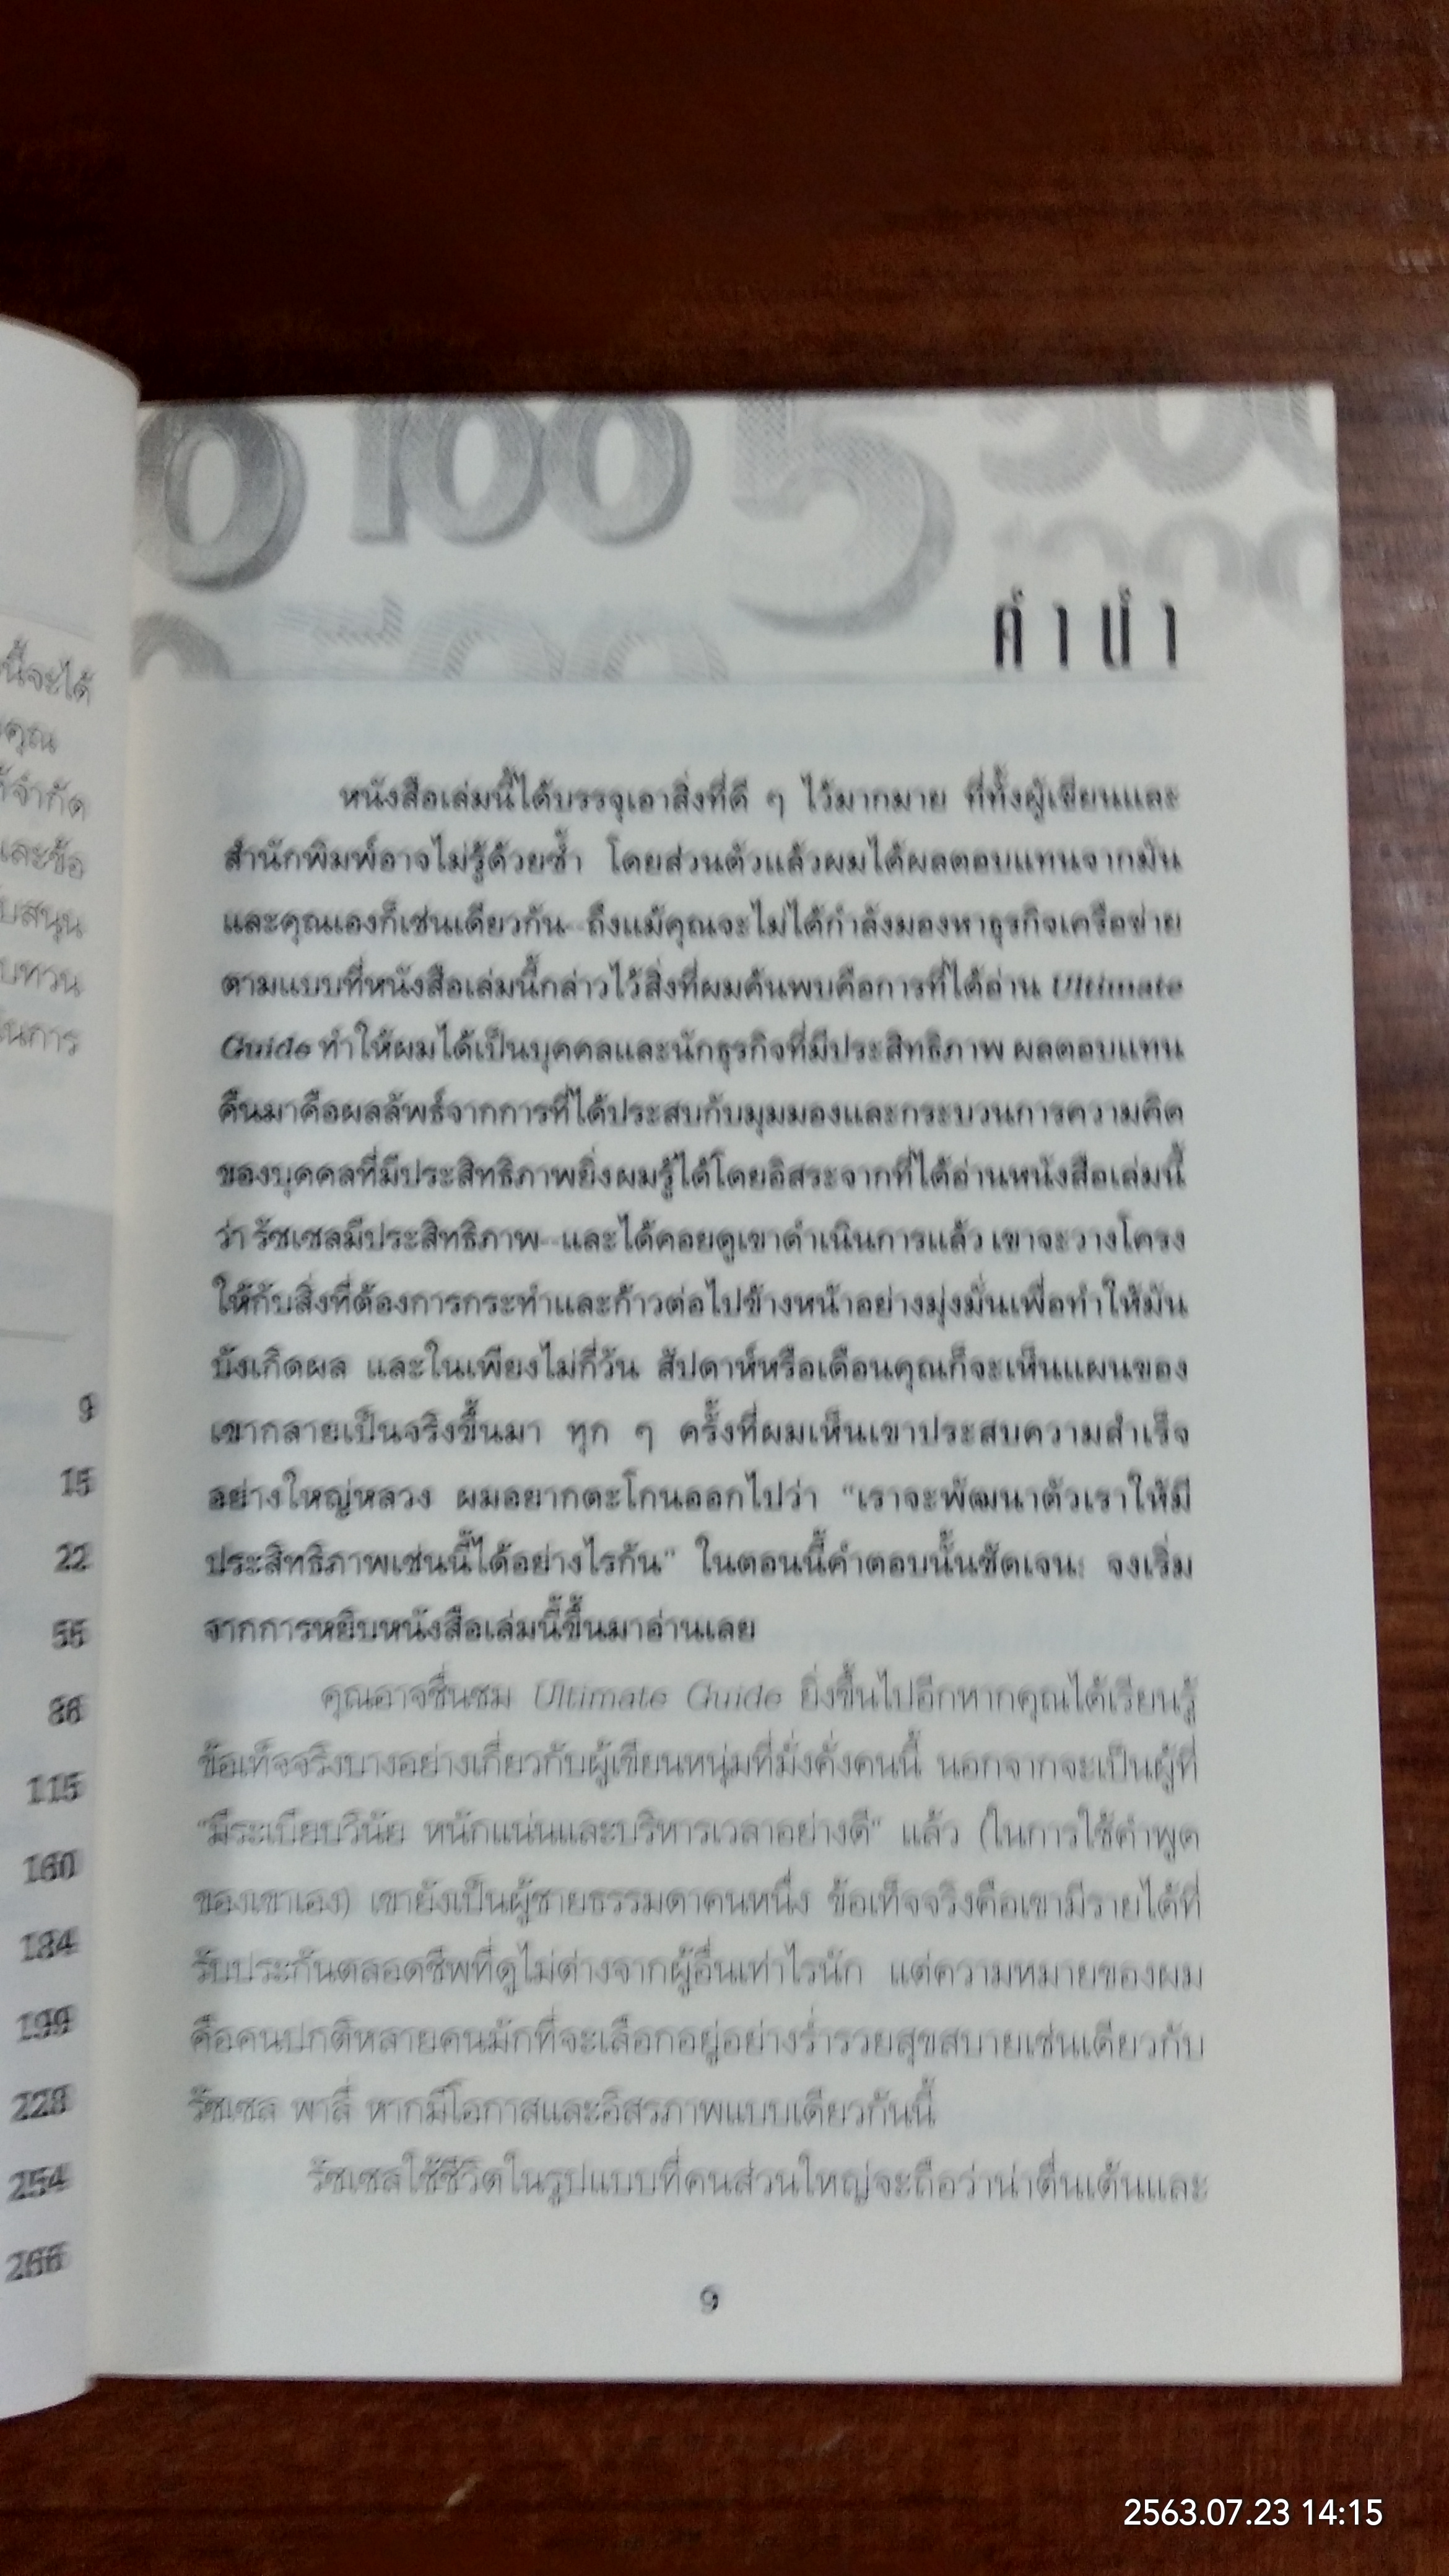 นี้จะได้
คุณ
จำกัด
และข้อ
สนุน
ทวน
ในการ
9
15
22
55
86
115
160
184
199
228
254
266
100
5
คำนำ
หนังสือเล่มนี้ได้บรรจุเอาสิ่งที่ดี ๆ ไว้มากมาย ที่ทั้งผู้เขียนและ
สำนักพิมพ์อาจไม่รู้ด้วยซ้ำ โดยส่วนตัวแล้วผมได้ผลตอบแทนจากมัน
และคุณเองก็เช่นเดียวกัน ถึงแม้คุณจะไม่ได้กำลังมองหาธุรกิจเครือข่าย
ตามแบบที่หนังสือเล่มนี้กล่าวไว้สิ่งที่ผมค้นพบคือการที่ได้อ่าน Ultimate
Guide ทำให้ผมได้เป็นบุคคลและนักธุรกิจที่มีประสิทธิภาพ ผลตอบแทน
คืนมาคือผลลัพธ์จากการที่ได้ประสบกับมุมมองและกระบวนการความคิด
ของบุคคลที่มีประสิทธิภาพยิ่งผมรู้ได้โดยอิสระจากที่ได้อ่านหนังสือเล่มนี้
ว่า รัซเซลมีประสิทธิภาพ และได้คอยดูเขาดำเนินการแล้ว เขาจะวางโครง
ให้กับสิ่งที่ต้องการกระทำและก้าวต่อไปข้างหน้าอย่างมุ่งมั่นเพื่อทำให้มัน
บังเกิดผล และในเพียงไม่กี่วัน สัปดาห์หรือเดือนคุณก็จะเห็นแผนของ
เขากลายเป็นจริงขึ้นมา ทุก ๆ ครั้งที่ผมเห็นเขาประสบความสำเร็จ
อย่างใหญ่หลวง ผมอยากตะโกนออกไปว่า "เราจะพัฒนาตัวเราให้มี
ประสิทธิภาพเช่นนี้ได้อย่างไรกัน" ในตอนนี้คำตอบนั้นชัดเจน: จงเริ่ม
จากการหยิบหนังสือเล่มนี้ขึ้นมาอ่านเลย
คุณอาจชื่นชม Ultimate Guide ยิ่งขึ้นไปอีกหากคุณได้เรียนรู้
ข้อเท็จจริงบางอย่างเกี่ยวกับผู้เขียนหนุ่มที่มั่งคั่งคนนี้ นอกจากจะเป็นผู้ที่
"มีระเบียบวินัย หนักแน่นและบริหารเวลาอย่างดี" แล้ว (ในการใช้คำพูด
ของเขาเอง) เขายังเป็นผู้ชายธรรมดาคนหนึ่ง ข้อเท็จจริงคือเขามีรายได้ที่
รับประกันตลอดชีพที่ดูไม่ต่างจากผู้อื่นเท่าไรนัก แต่ความหมายของผม
คือคนปกติหลายคนมักที่จะเลือกอยู่อย่างร่ำรวยสุขสบายเช่นเดียวกับ
รัซเซล พาลี่ หากมีโอกาสและอิสรภาพแบบเดียวกันนี้
รัซเซลใช้ชีวิตในรูปแบบที่คนส่วนใหญ่จะถือว่าน่าตื่นเต้นและ
9
2563.07.23 14:15